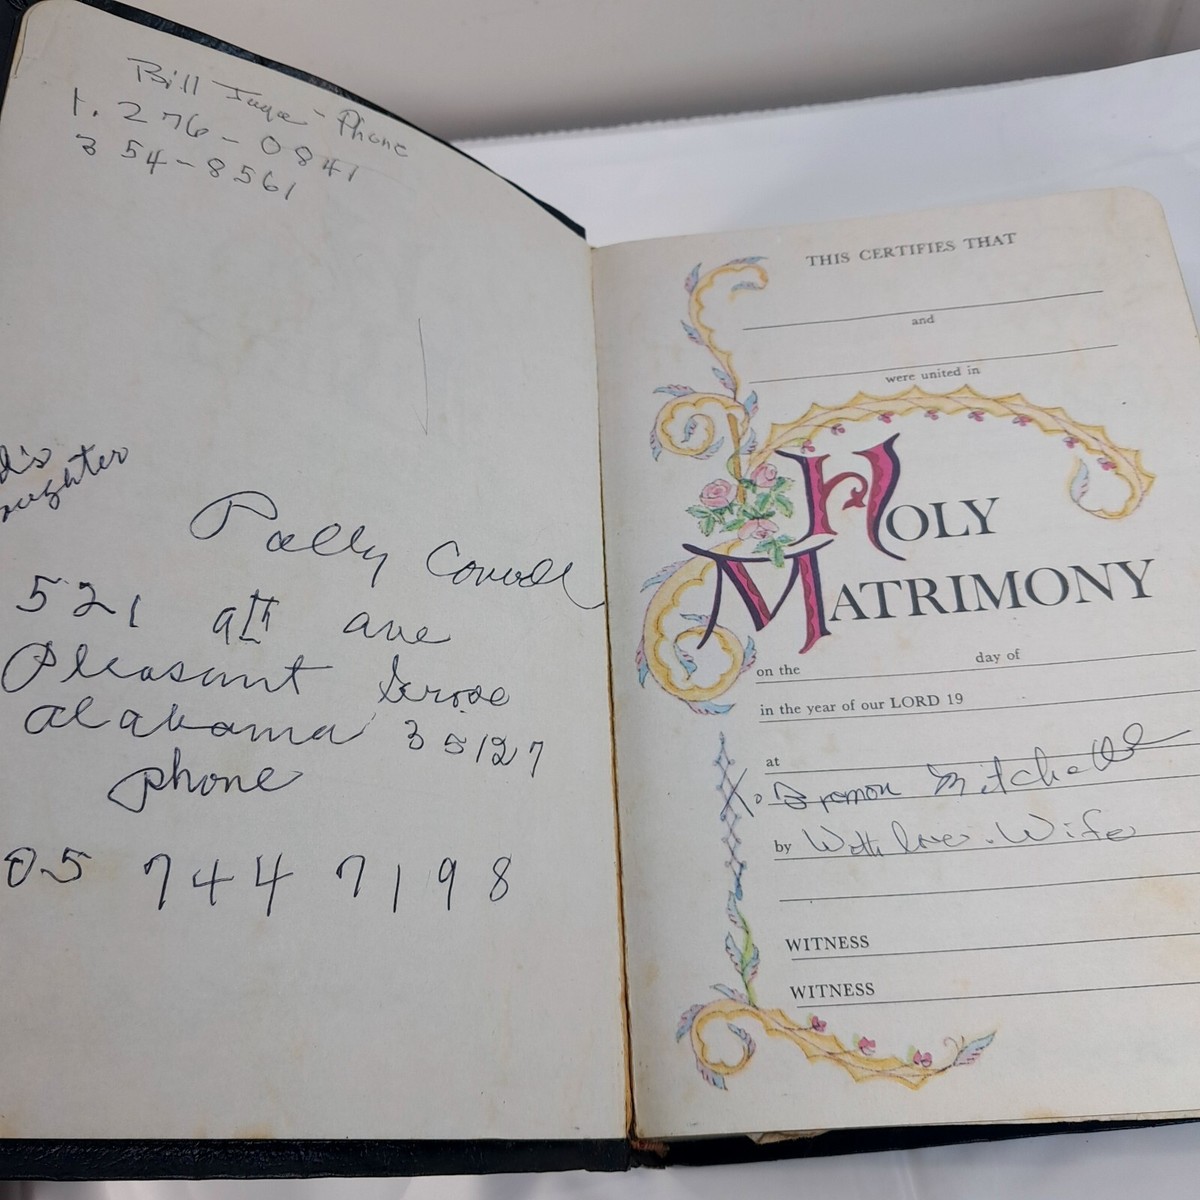 Bill - Phone
1. 276-0841
354-8561
Polly
521 9th ave
Pleasant Grove
Alabama 35127
phone
05 744 7198
THIS CERTIFIES THAT
and
were united in
HOLY
MATRIMONY
on the day of
in the year of our LORD 19
at
Mitchell
by With love. Wife
WITNESS
WITNESS